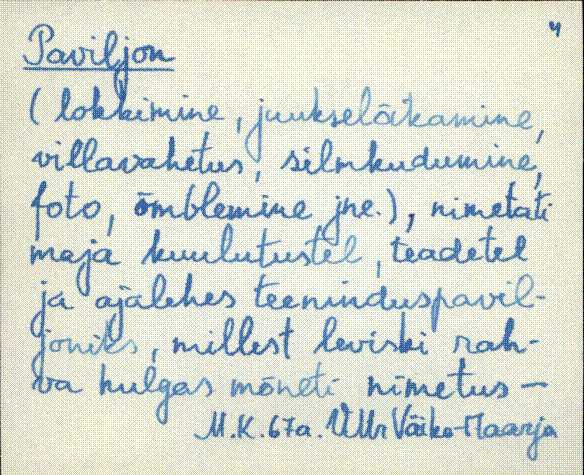 4
Paviljon
(lokkimine, juukselõikamine,
villavahetus, silmkudumine,
foto, õmblemine jne.), nimetati
maja kuulutustel, teadetel
ja ajalehes teeninduspavil-
joniks, millest leviski rah-
va hulgas mõneti nimetus —
M.K. 67a. VMr Väike-Maarja